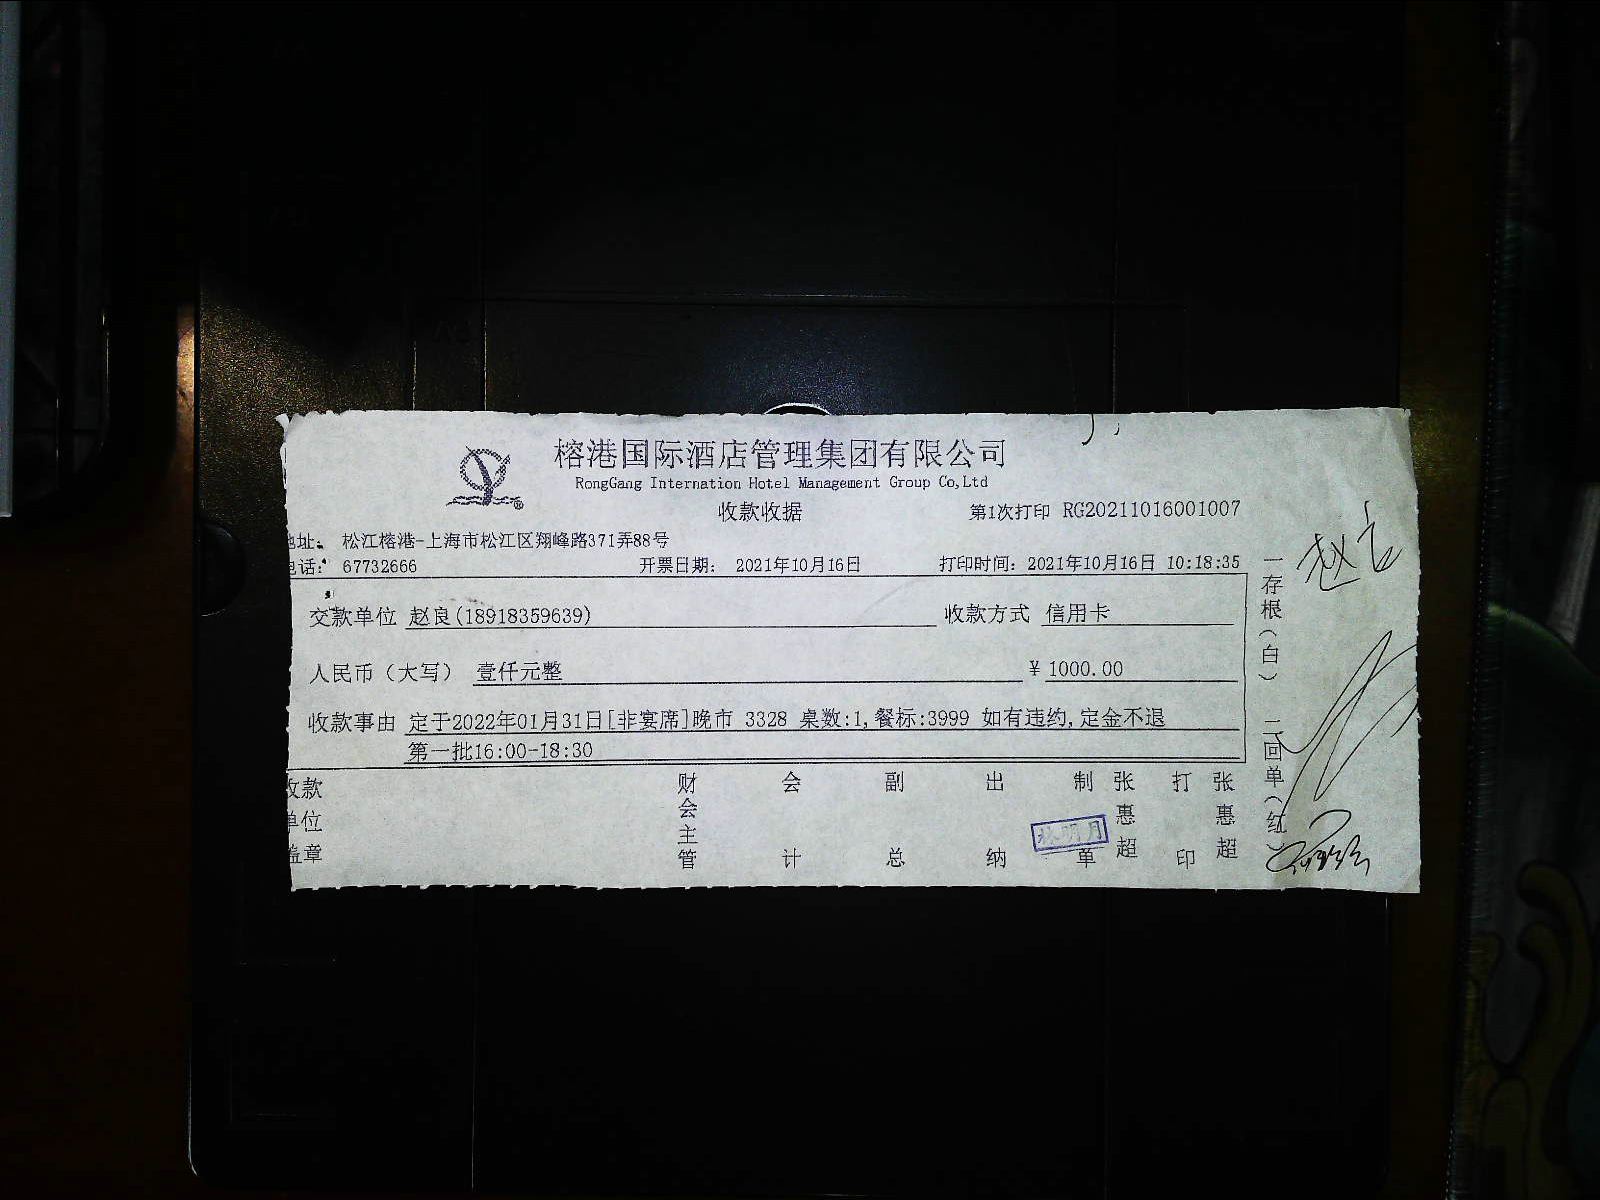 榕港国际酒店管理集团有限公司
RongGang Internation Hotel Management Group Co,Ltd
收款收据
第1次打印 RG20211016001007
地址: 松江榕港-上海市松江区翔峰路371弄88号
电话: 67732666 开票日期: 2021年10月16日 打印时间: 2021年10月16日 10:18:35
交款单位 赵良(18918359639) 收款方式 信用卡
人民币（大写） 壹仟元整 ¥ 1000.00
收款事由 定于2022年01月31日[非宴席]晚市 3328 桌数:1,餐标:3999 如有违约,定金不退
第一批16:00-18:30
收款单位盖章
财会主管
会计
副总
出纳
制单
张惠超
打印
张惠超
林明月
一存根（白） 二回单（红）